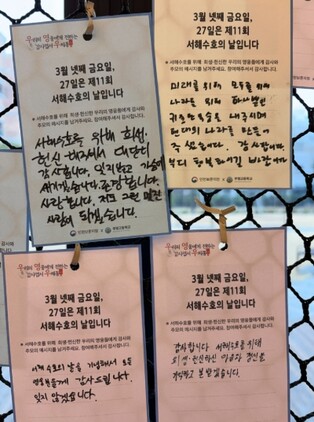 3월 넷째 금요일,
27일은 제11회
서해수호의 날입니다
★서해수호를 위해 희생·헌신한 우리의 영웅들에게 감사와
추모의 메시지를 남겨주세요. 참여해주셔서 감사합니다.
서해수호를 위해 희생.
헌신 해주셔서 대단히
감사합니다. 잊지않고 가슴에
새기겠습니다. 존경합니다.
사랑합니다. 저도 그런 멋진
사람이 되겠습니다.
3월 넷째 금요일,
27일은 제11회
서해수호의 날입니다
★서해수호를 위해 희생·헌신한 우리의 영웅들에게 감사와
추모의 메시지를 남겨주세요. 참여해주셔서 감사합니다.
미래를 위해 모두를 위해
나라를 위해
주셨습니다. 감사합니다.
부디 행복하시길 바랍니다
우리의 영웅에게 전하는
감사엽서 우체통
3월 넷째 금요일,
27일은 제11회
서해수호의 날입니다
★서해수호를 위해 희생·헌신한 우리의 영웅들에게 감사와
추모의 메시지를 남겨주세요. 참여해주셔서 감사합니다.
서해수호의 날을 기념해서 모든
감사드립니다.
잊지 않겠습니다.
3월 넷째 금요일,
27일은 제11회
서해수호의 날입니다
★서해수호를 위해 희생·헌신한 우리의 영웅들에게 감사와
추모의 메시지를 남겨주세요. 참여해주셔서 감사합니다.
감사합니다 서해수호를 위해
희생·헌신하신
기억하고 본받겠습니다.